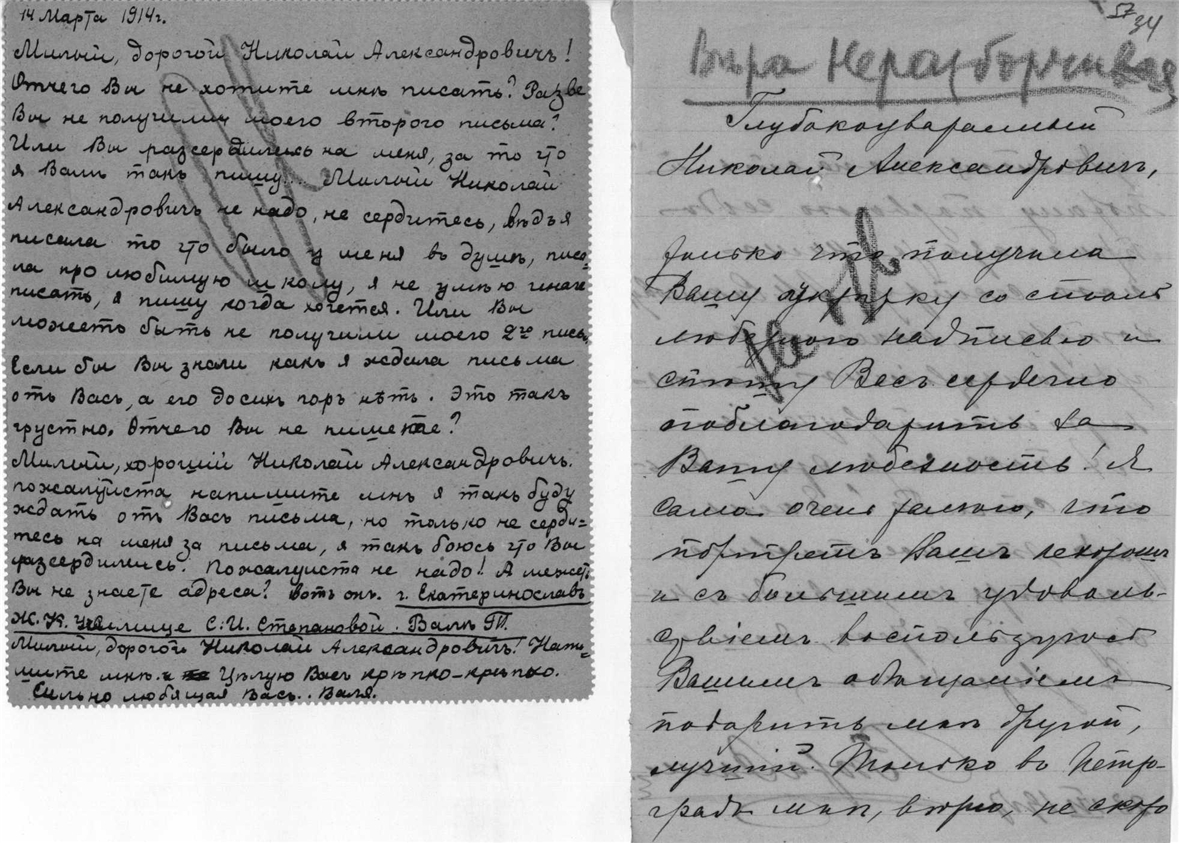 14 Марта 1914г.
Милый, дорогой Николай Александровичъ!
Отчего Вы не хотите мнѣ писать? Развѣ
Вы не получили моего второго письма?
Или Вы разсердились на меня, за то что
я Вамъ такъ пишу... Милый Николай
Александровичъ не надо, не сердитесь, вѣдь я
писала то что было у меня въ душѣ, писа-
ла про любимую школу, я не умѣю иначе
писать, я пишу когда хочется. Или Вы
можетъ быть не получили моего 2го письм
Если бы Вы знали какъ я ждала письма
отъ Васъ, а его досихъ поръ нѣтъ. Это такъ
грустно. Отчего Вы не пишете?
Милый, хорошій Николай Александровичъ.
пожалуйста напишите мнѣ я такъ буду
ждать отъ Васъ письма, но только не серди-
тесь на меня за письма, я такъ боюсь что Вы
разсердились. Пожалуиста не надо! А можетъ
Вы не знаете адреса? Вотъ онъ. г. Екатеринославъ
Ж. К. Училище С. И. Степановой. Валѣ
Милый, дорогой Николай Александровичъ! Напи-
шите мнѣ. Цѣлую Васъ крѣпко-крѣпко.
Сильно любящая Васъ.. Валя.
57
34
Вѣра Неразборчивая
Глубокоуважаемый
Николай Александровичъ,
только что получила
Вашу открытку со столь
любезною надписью и
спѣшу Васъ сердечно
поблагодарить за
Вашу любезность! Я
сама очень жалѣю, что
портретъ Вашъ нехорошъ
и съ большимъ удоволь-
ствіемъ воспользуюсь
Вашимъ обѣщаніемъ
подарить мнѣ другой,
лучшій. Только въ Петро-
градѣ мнѣ, вѣрно, не скоро